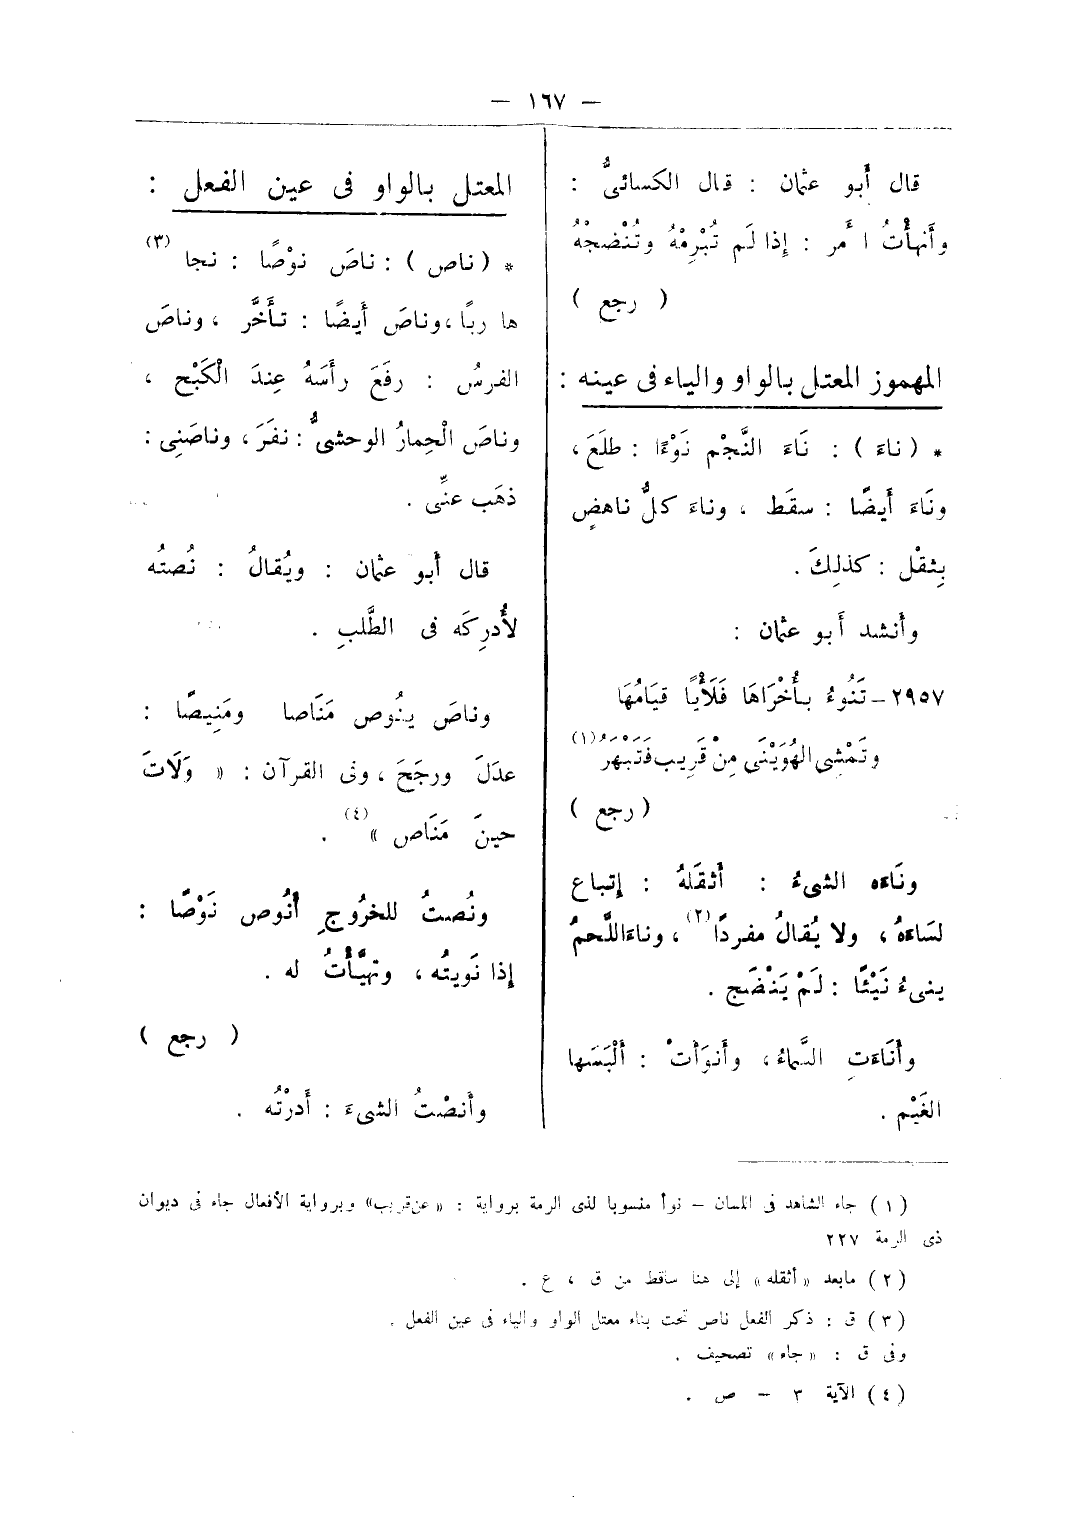 — ١٦٧ —
قال أَبو عثمان : قال الكسائىُّ :
وأَنهأْتُ ا أَمر : إِذا لَم تُبْرِمْهُ وتُنْضجْهُ
( رجع )
المهموز المعتل بالواو والياء فى عينه :
* ( ناءَ ) : نَاءَ النَّجْم نَوْءًا : طلَعَ ،
ونَاءَ أَيضًا : سقَط ، وناءَ كلُّ ناهضٍ
بِثقْل : كذلِكَ .
وأَنشد أَبو عثمان :
٢٩٥٧ – تَنُوءُ بأُخْرَاهَا فَلَأْيًا قيَامُهَا
وتَمْشِى الهُوَيْنَى مِنْ قَرِيب فَتَبْهَرُ (١)
( رجع )
ونَاءَه الشىءُ : أَثقَلهُ : إِتباع
لسَاءَهُ ، ولا يُقالُ مفردًا (٢) ، وناءَ اللَّحمُ
ينىءُ نَيْئًا : لَمْ يَنْضَج .
وأَنَاءَتِ السَّماءُ ، وأَنوَأَتْ : أَلْبَسَها
الغَيْم .
المعتل بالواو فى عين الفعل :
* ( ناص ) : ناصَ نوْصًا : نجا (٣)
ها ربًا ، وناصَ أَيضًا : تأَخَّر ، وناصَ
الفرسُ : رفَعَ رأَسَهُ عِندَ الْكَبْح ،
وناصَ الْحِمارُ الوحشىُّ : نفرَ ، وناصَنِى :
ذهَب عنِّى .
قال أَبو عثمان : ويُقالُ : نُصتُه
لأُدرِكَه فى الطَّلبِ .
وناصَ ينُوص مَنَاصا ومَنِيصًا :
عدَلَ ورجَحَ ، وفى القرآن : « وَلَاتَ
حينَ مَنَاص » (٤) .
ونُصتُ للخرُوجِ أَنُوص نَوْصًا :
إِذا نَويتُه ، وتهيَّأْتُ له .
( رجع )
وأَنصْتُ الشىءَ : أَدرْتُه .
( ١ ) جاء الشاهد فى اللسان – نوأ منسوبا لذى الرمة برواية : « عن قريب » وبرواية الأفعال جاء فى ديوان
ذى الرمة ٢٢٧
( ٢ ) مابعد « أثقله » إلى هنا ساقط من ق ، ع .
( ٣ ) ق : ذكر الفعل ناص تحت بناء معتل الواو والياء فى عين الفعل .
وفى ق : « جاء » تصحيف .
( ٤ ) الآية ٣ – ص .